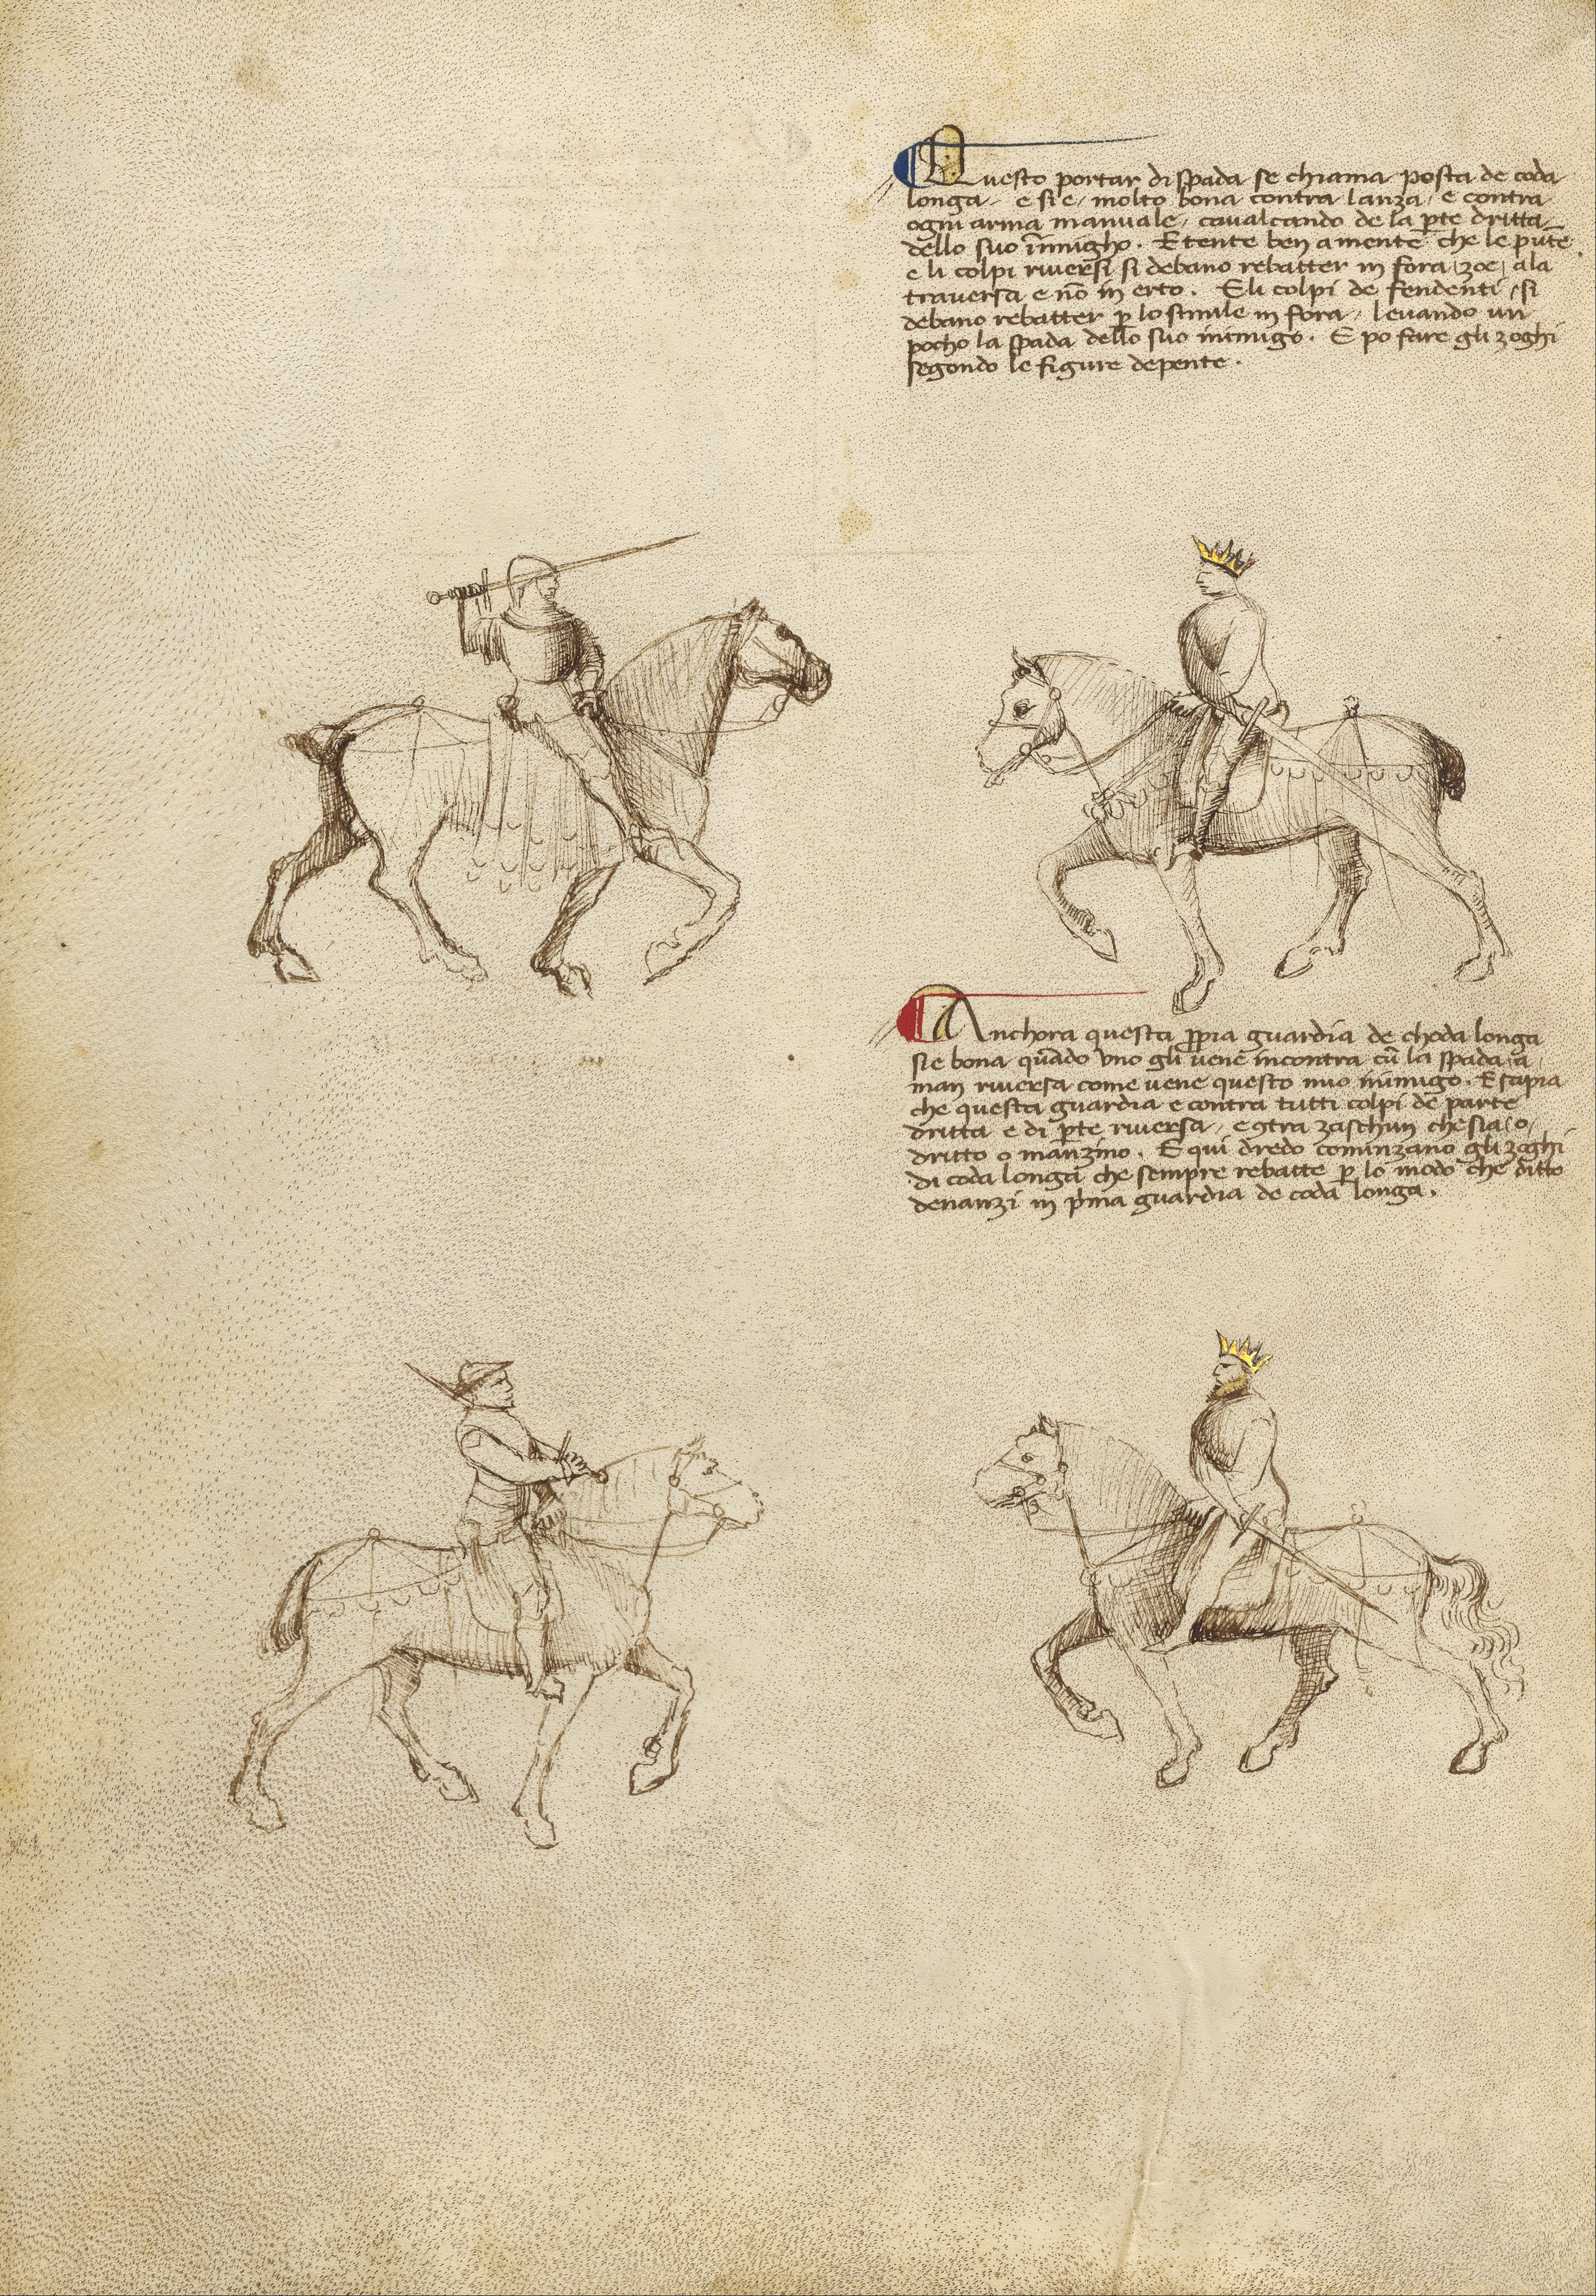 Questo portar di spada se chiama posta de coda
longa e si e molto bona contra lanza / e contra
ogni arma manuale, cavalcando de la pte dritta
dello suo inimigho. E tente ben a mente che le pute
e li colpi riversi si debano rebatter in fora zoe, ala
traversa e nō in erto. E li colpi de fendenti / si
debano rebatter p lo simile in fora / levando un
pocho la spada dello suo inimigo. E po fare gli zoghi
segondo le figure depente.
Anchora questa ppia guardia de choda longa
si e bona quādo uno gli vene incontra cū la spada a
man riversa come vene questo mio inimigo. E sapia
che questa guardia e contra tutti colpi de parte
dritta e di pte riversa / e 9tra zaschun che sia / o /
dritto o manzino. E qui dredo cominzano gli zoghi
di coda longa che sempre rebatte p lo modo che ditto
denanzi in pma guardia de coda longa.